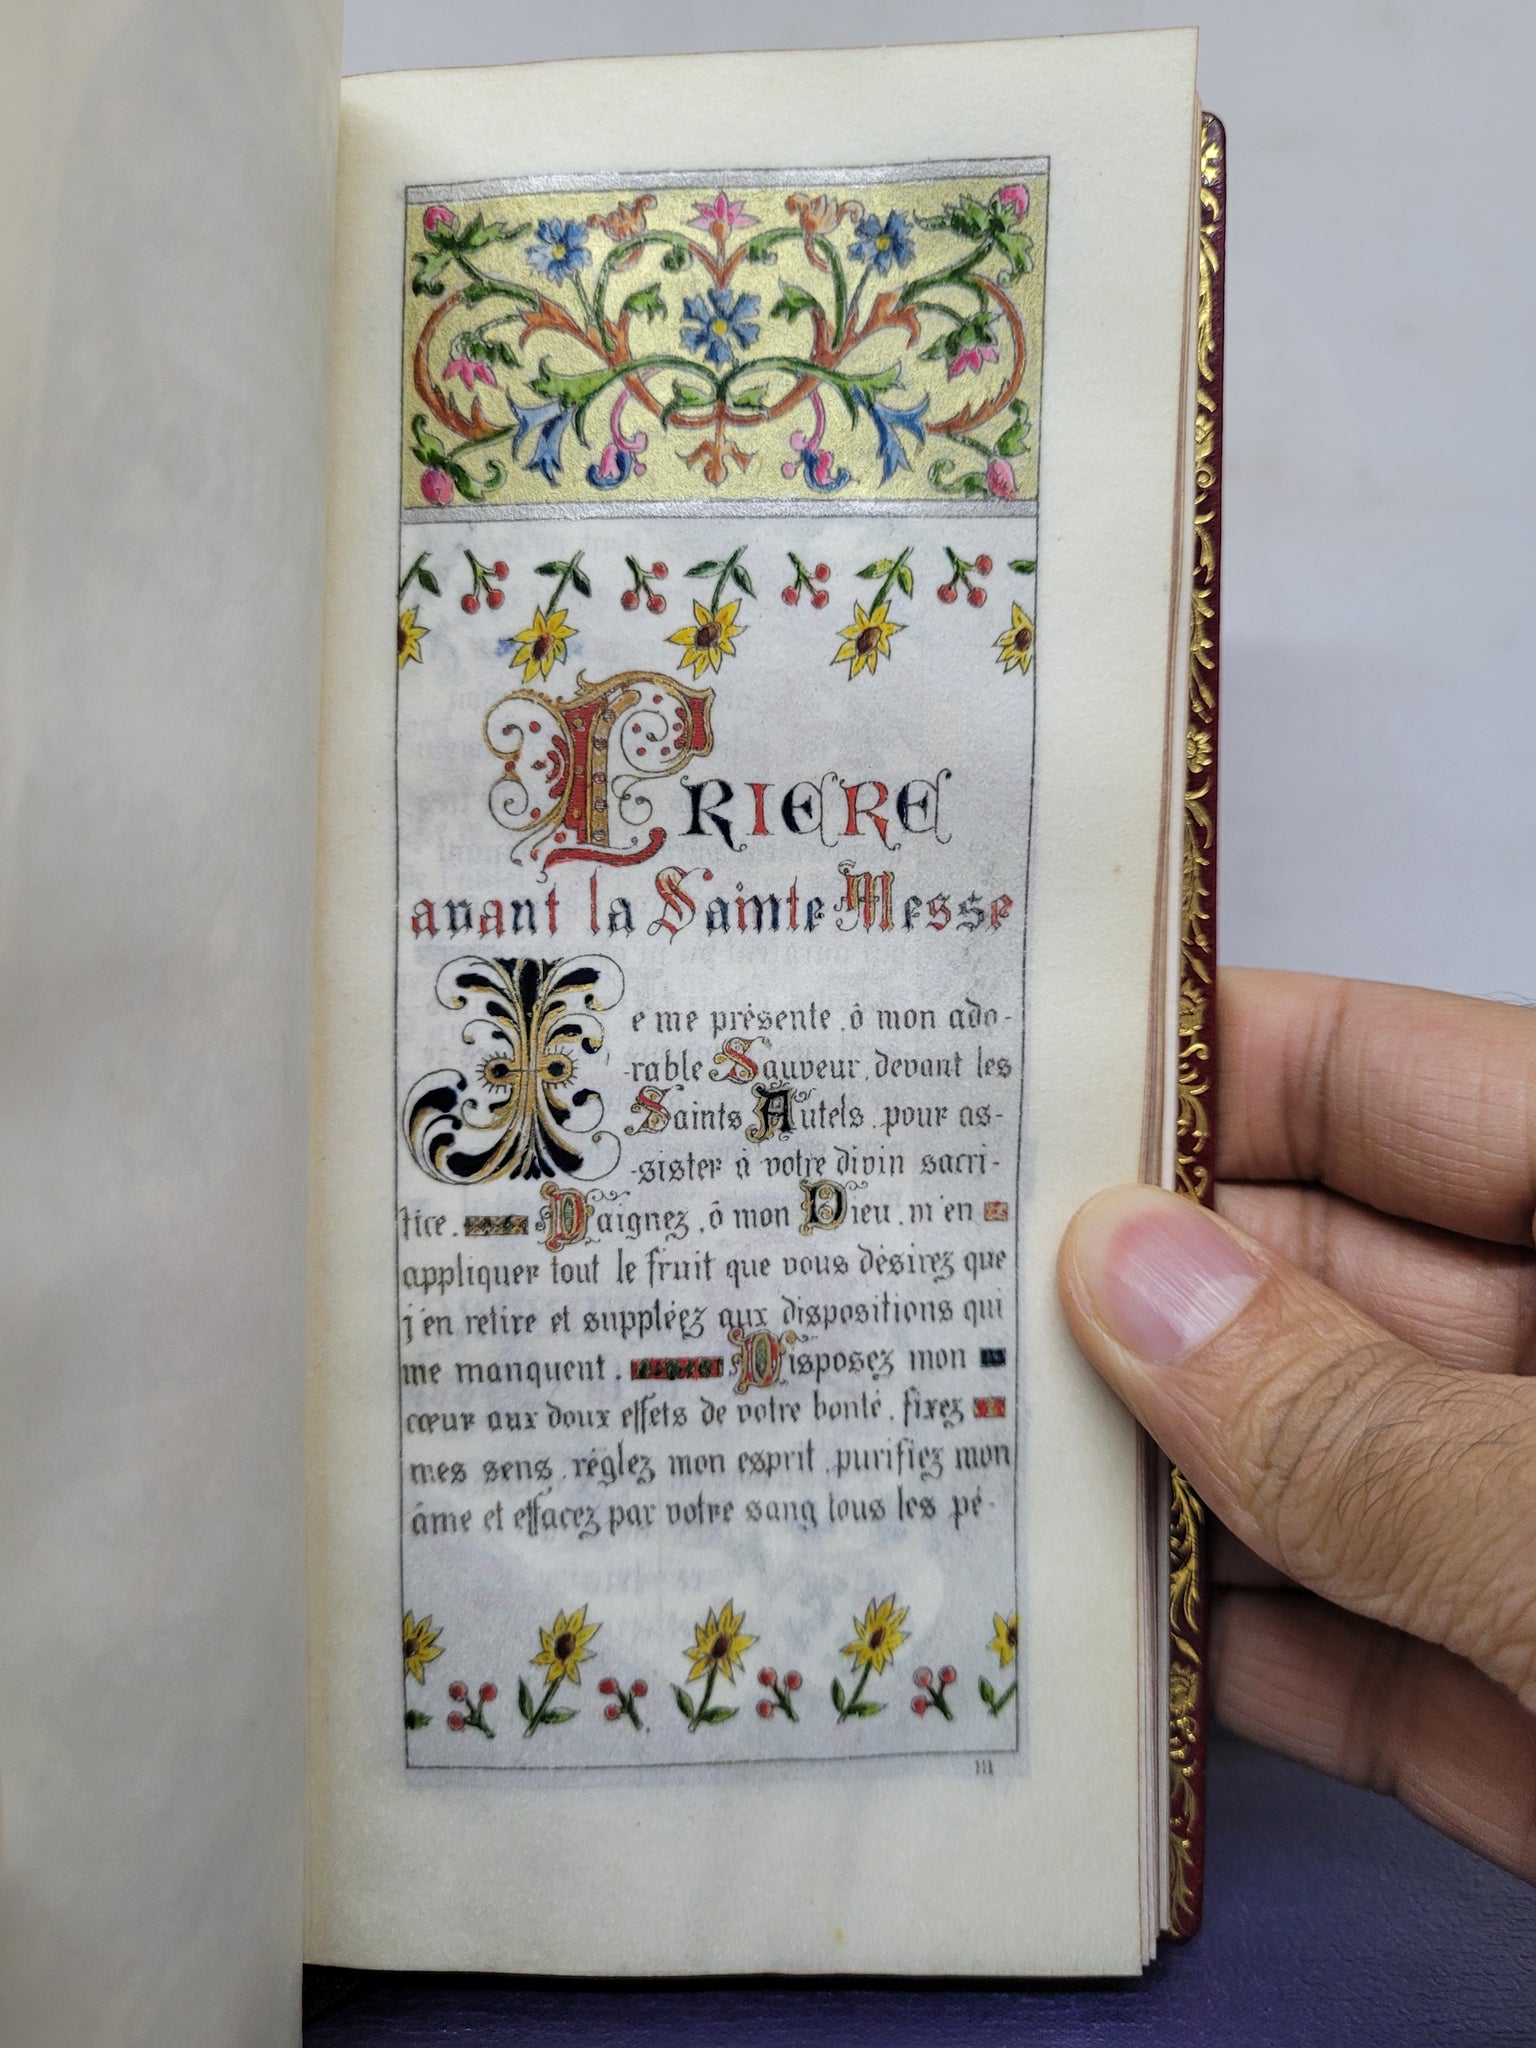 PRIERE
avant la Sainte Messe
Je me présente, ô mon ado-
-rable Sauveur, devant les
Saints Autels, pour as-
-sister à votre divin sacri-
fice. Daignez, ô mon Dieu, m'en
appliquer tout le fruit que vous désirez que
j'en retire et suppléez aux dispositions qui
me manquent. Disposez mon
cœur aux doux effets de votre bonté, fixez
mes sens, réglez mon esprit, purifiez mon
âme et effacez par votre sang tous les pé-
III